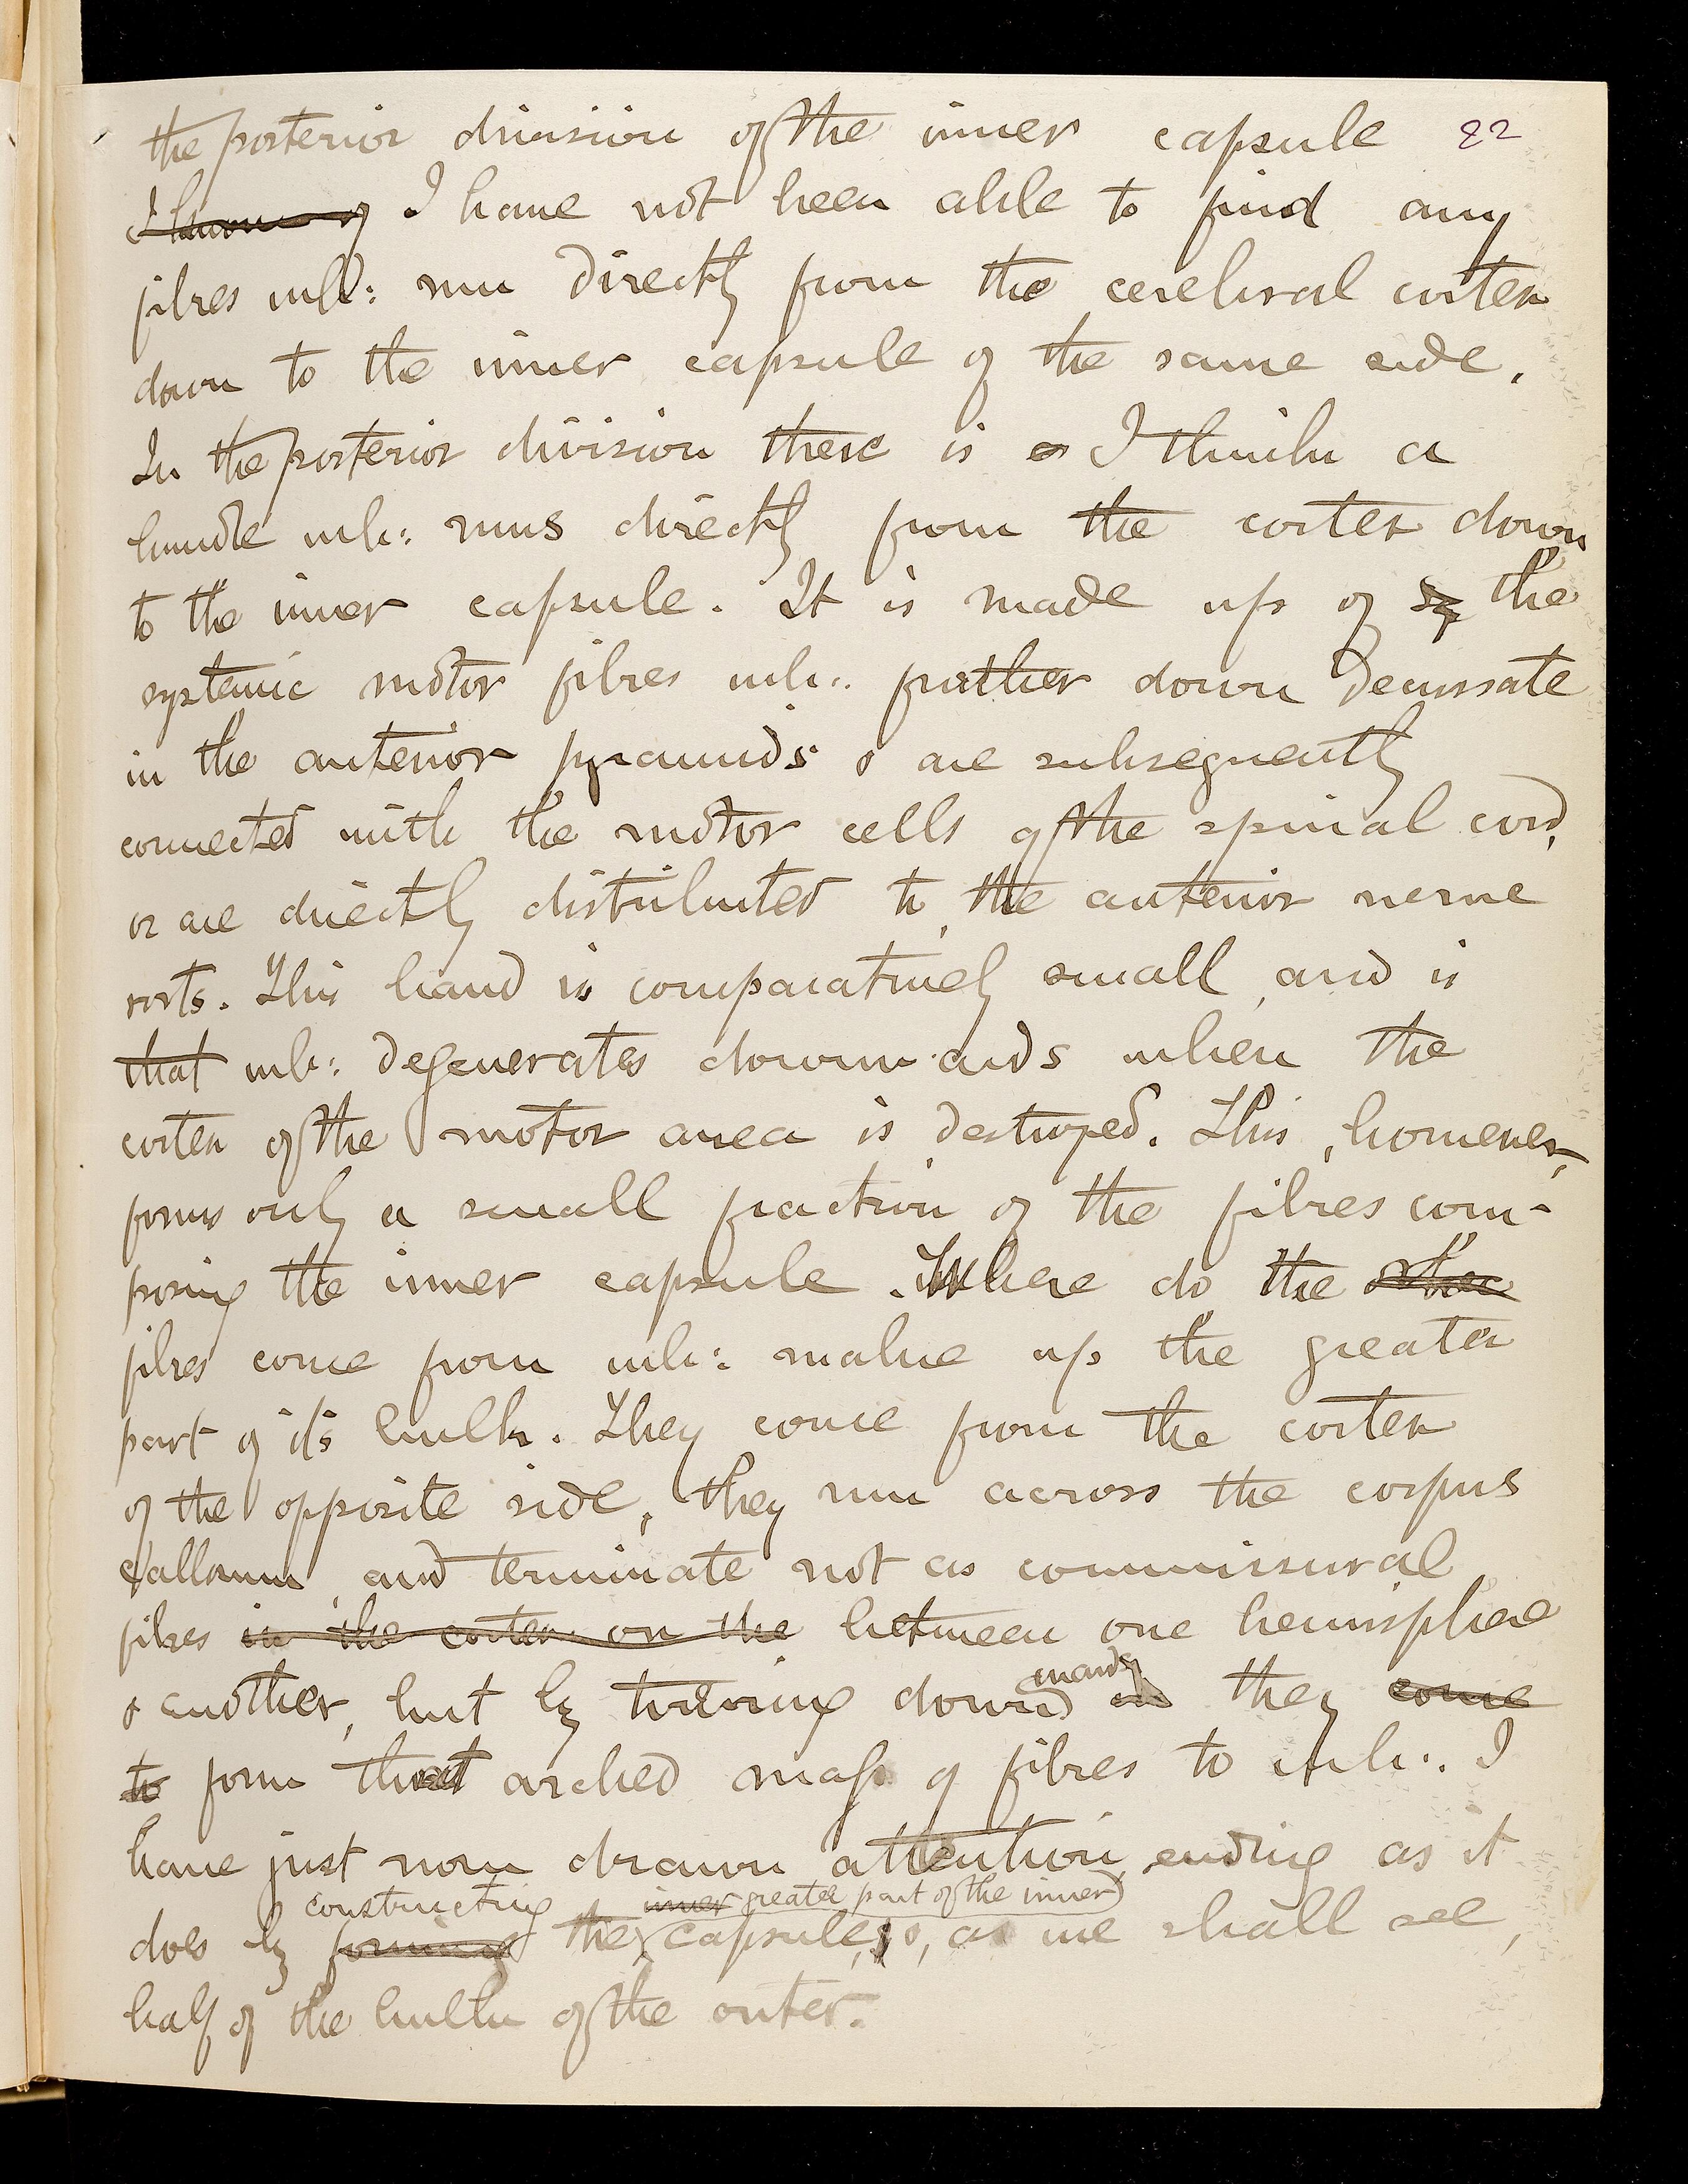 the posterior division of the inner capsule 22
I know of I have not been able to find any
fibres wh: run directly from the cerebral cortex
down to the inner capsule of the same side.
In the posterior division there is a I think a
bundle wh: runs directly from the cortex down
to the inner capsule. It is made up of sy the
systemic motor fibres wh: further down decussate
in the anterior pyramids & are subsequently
connected with the motor cells of the spinal cord,
or are directly distributed to the anterior nerve
roots. This band is comparatively small, and is
that wh: degenerates downwards when the
cortex of the motor area is destroyed. This, however,
forms only a small fraction of the fibres com-
posing the inner capsule. Where do the other
fibres come from wh: make up the greater
part of it's bulk. They come from the cortex
of the opposite side, they run across the corpus
callosum, and terminate not as commissural
fibres in the cortex on the between one hemisphere
wards
& another, but by turning down in they come
to form that arched mass of fibres to wh:. I
have just now drawn attention, ending as it
constructing inner greater part of the inner
does by forming the capsule, &, as we shall see,
half of the bulk of the outer.